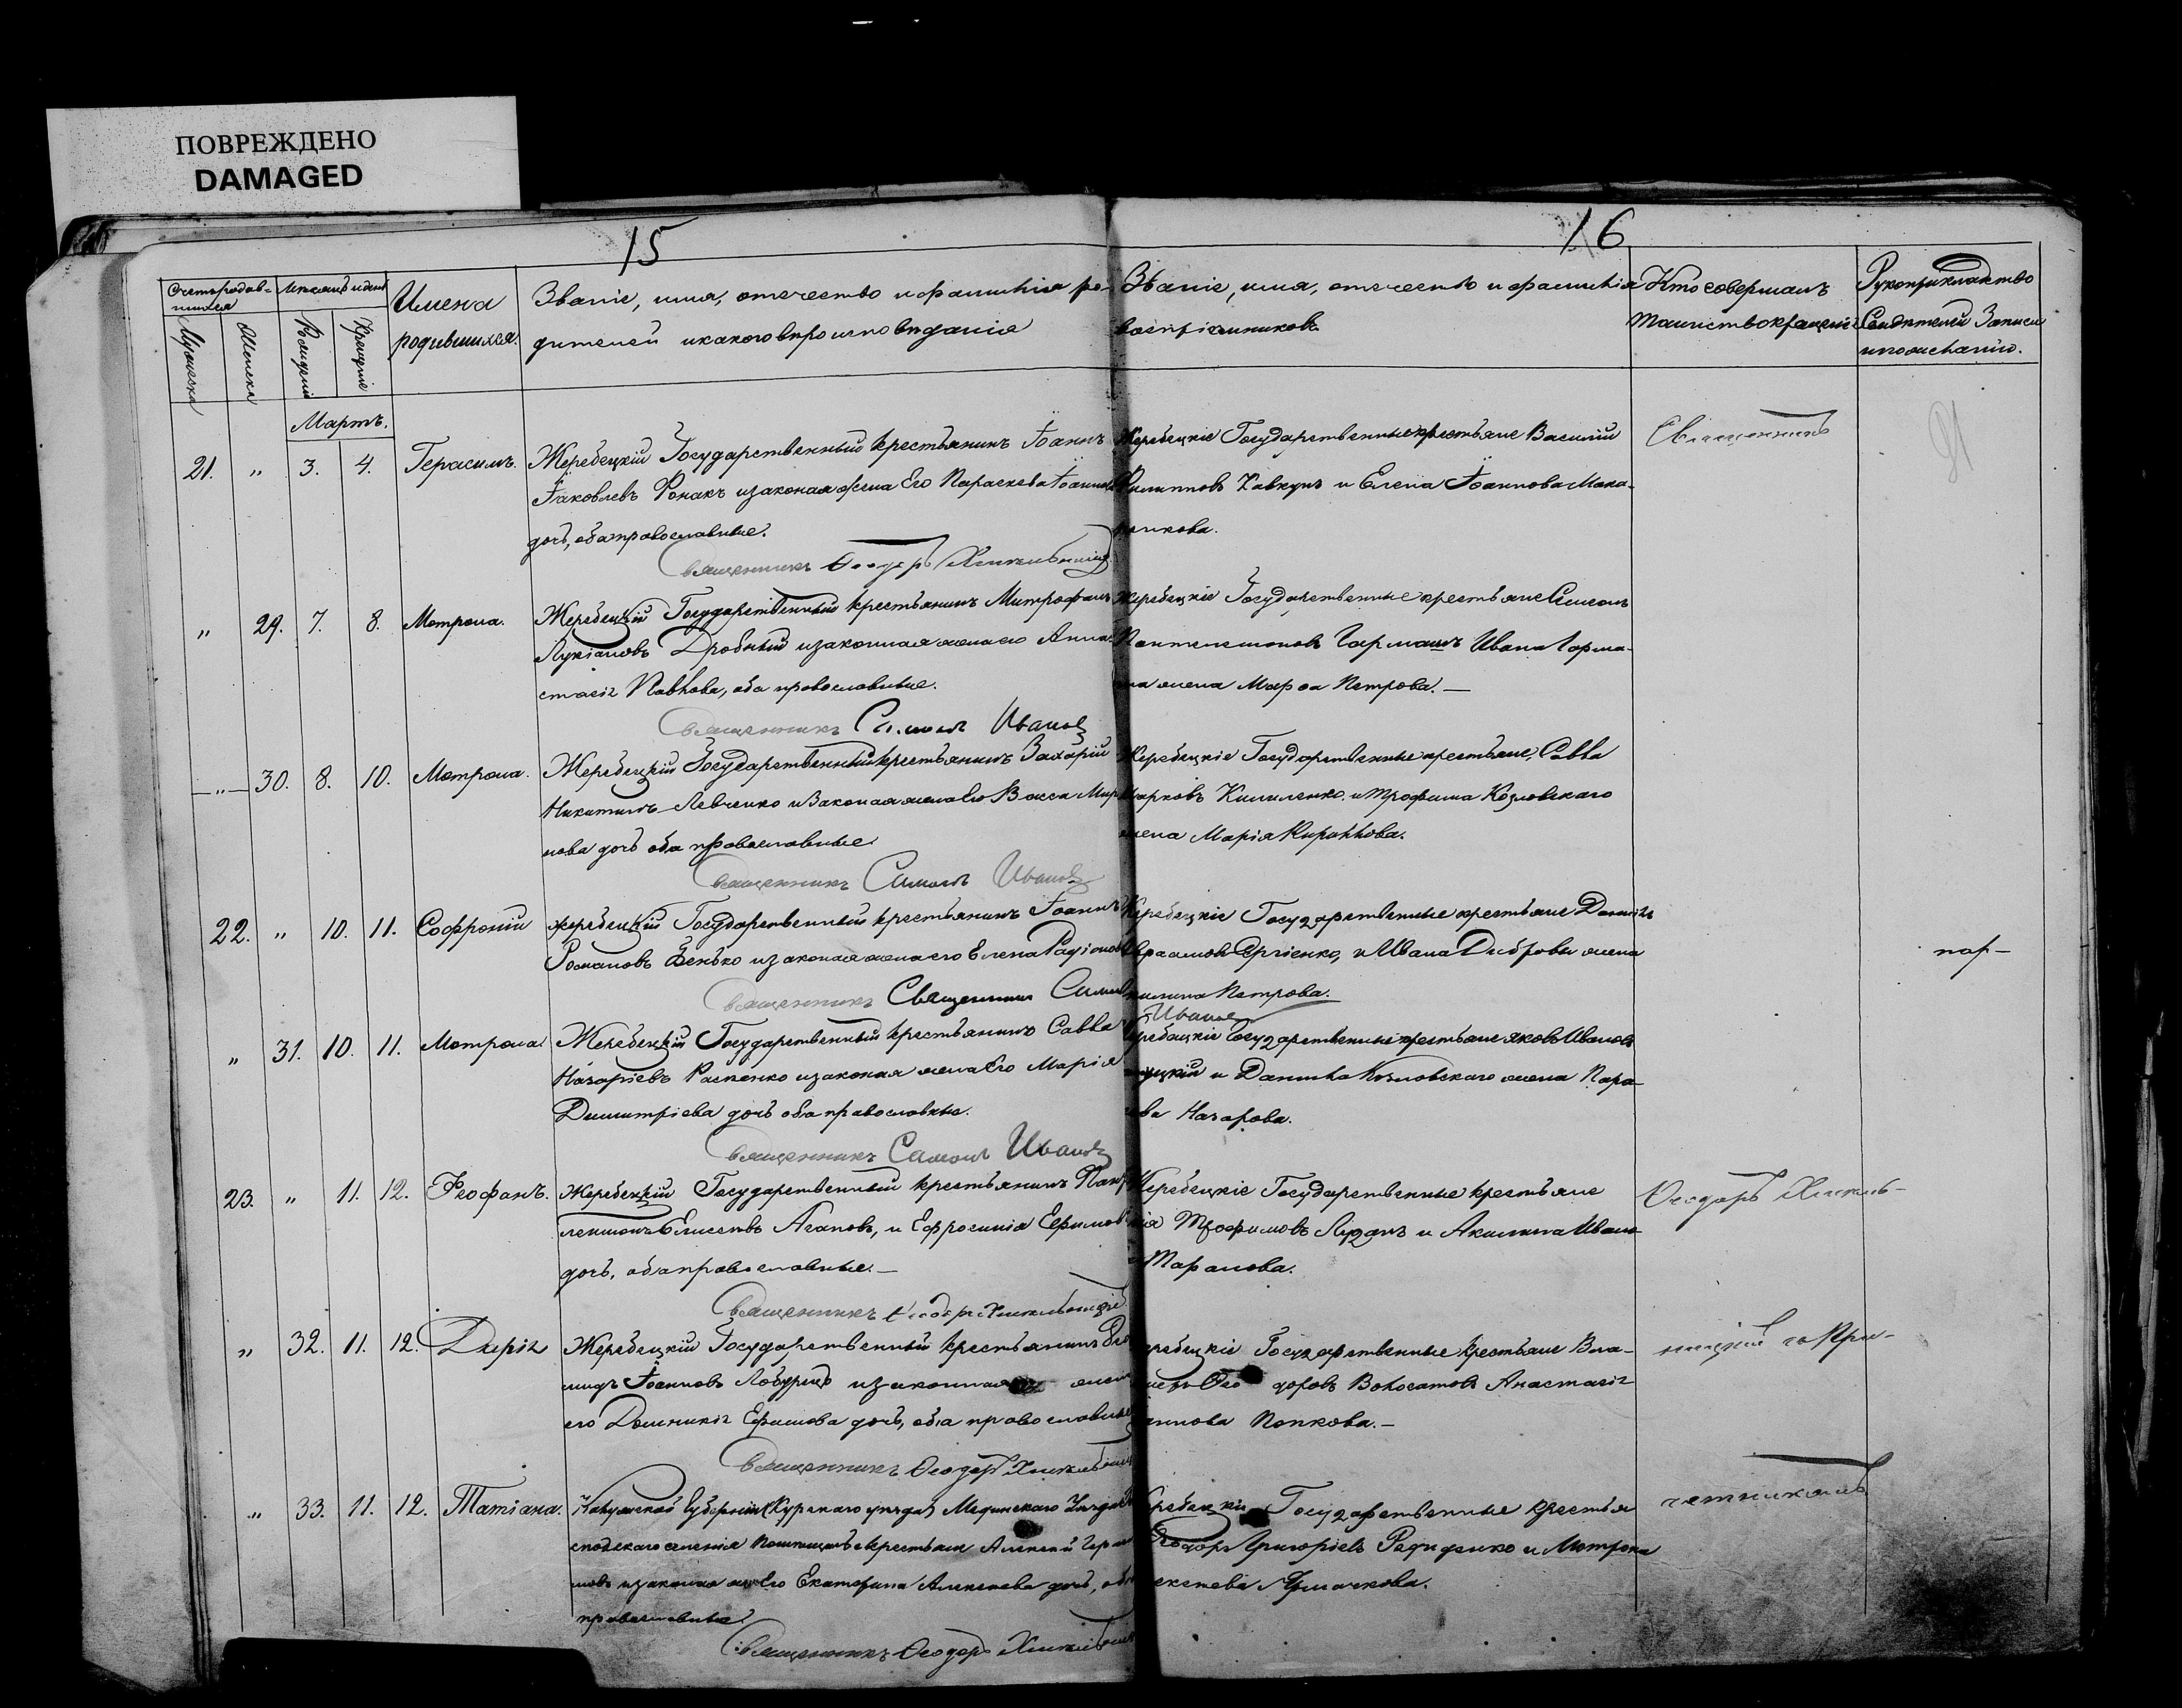 ПОВРЕЖДЕНО
DAMAGED
15
16
Счетъ родившихся
Мѣсяцъ и день
Имена
родившихся.
Званіе, имя, отечество и фамилія ро-
дителей и какого вѣроисповѣданія
Званіе, имя, отечество и фамилія
воспріемниковъ
Кто совершалъ
таинство крещенія
Рукоприкладство
Свидѣтелей Записи
по желанію.
Мужеска
Женска
Рожденія
Крещенія
Мартъ.
21. " 3. 4. Герасимъ.
Жеребецкій Государственный крестьянинъ Іоаннъ
Іаковлевъ Ронакъ и законая жена Его Параскева Іоаннова
дочь, оба православные.
Священникъ Ѳеодоръ
Жеребецкіе Государственные крестьяне Василій
Филипповъ Кавкунъ и Елена Іоаннова Мака-
Священникъ
21
" 29. 7. 8. Мотрона.
Жеребецкій Государственный крестьянинъ Митрофанъ
Лукіановъ Дробный и законная жена его Анна-
стасія Павлова, оба православные.
Священникъ Самоилъ Ивановъ
Жеребецкіе Государственные крестьяне Симеонъ
Пантелеимоновъ Гармашъ Ивана Гарма-
жена Марфа Петрова.—
— " — 30. 8. 10. Мотрона.
Жеребецкій Государственный крестьянинъ Захарій
Никитинъ Левченко и Законая жена Его Васса Миро
нова дочь оба православные.
Священникъ Самоилъ Ивановъ
Жеребецкіе Государственные крестьяне, Савва
Марковъ Кишленко и Трофима Козловскаго
жена Марія Кириллова.
22. " 10. 11. Софроній
Жеребецкій Государственный крестьянинъ Іоаннъ
Романовъ Фенько и законая жена его Елена Радіонова
Священникъ Священникъ Самоилъ
Ивановъ
Жеребецкіе Государственные крестьяне Даніилъ
Авраамовъ Сергіенко, и Ивана Дибровы жена
Петрова.
пор-
" 31. 10. 11. Мотрона.
Жеребецкій Государственный крестьянинъ Савва
Назаріевъ Раченко и законая жена Его Марія
Димитріева дочь оба православные.
Священникъ Самоилъ Ивановъ
Жеребецкіе Государственные крестьяне Яковъ Ивановъ
и Данила Козловскаго жена Пара-
Назарова.
23. " 11. 12. Феофанъ.
Жеребецкій Государственный крестьянинъ Панте
леимонъ Елисеевъ Агаповъ, и Ефросинія Ефимова
дочь, оба православные.—
Священникъ Ѳеодоръ
Жеребецкіе Государственные крестьяне
Трофимовъ Лузанъ и Акилина Ивано-
Таранова.
Ѳеодоръ
" 32. 11. 12. Дарія
Жеребецкій Государственный крестьянинъ
Іоанновъ и законная жена
его Домникія Ефимова дочь, оба православные
Священникъ Ѳеодоръ
Жеребецкіе Государственные крестьяне Вла-
Ѳеодоровъ Волосатовъ Анастасія
Попкова.—
" 33. 11. 12. Татіана.
Калужской Губерніи (Курскаго уѣзда) Мединскаго Уѣзда
крестьянинъ Алексѣй
и законная жена Его Екатерина Алексѣева дочь, оба
православные.
Священникъ Ѳеодоръ
Жеребецкіе Государственные крестья
Ѳеодоръ Григоріевъ Радиченко и Мотрона
Алексѣева Ярмачкова.